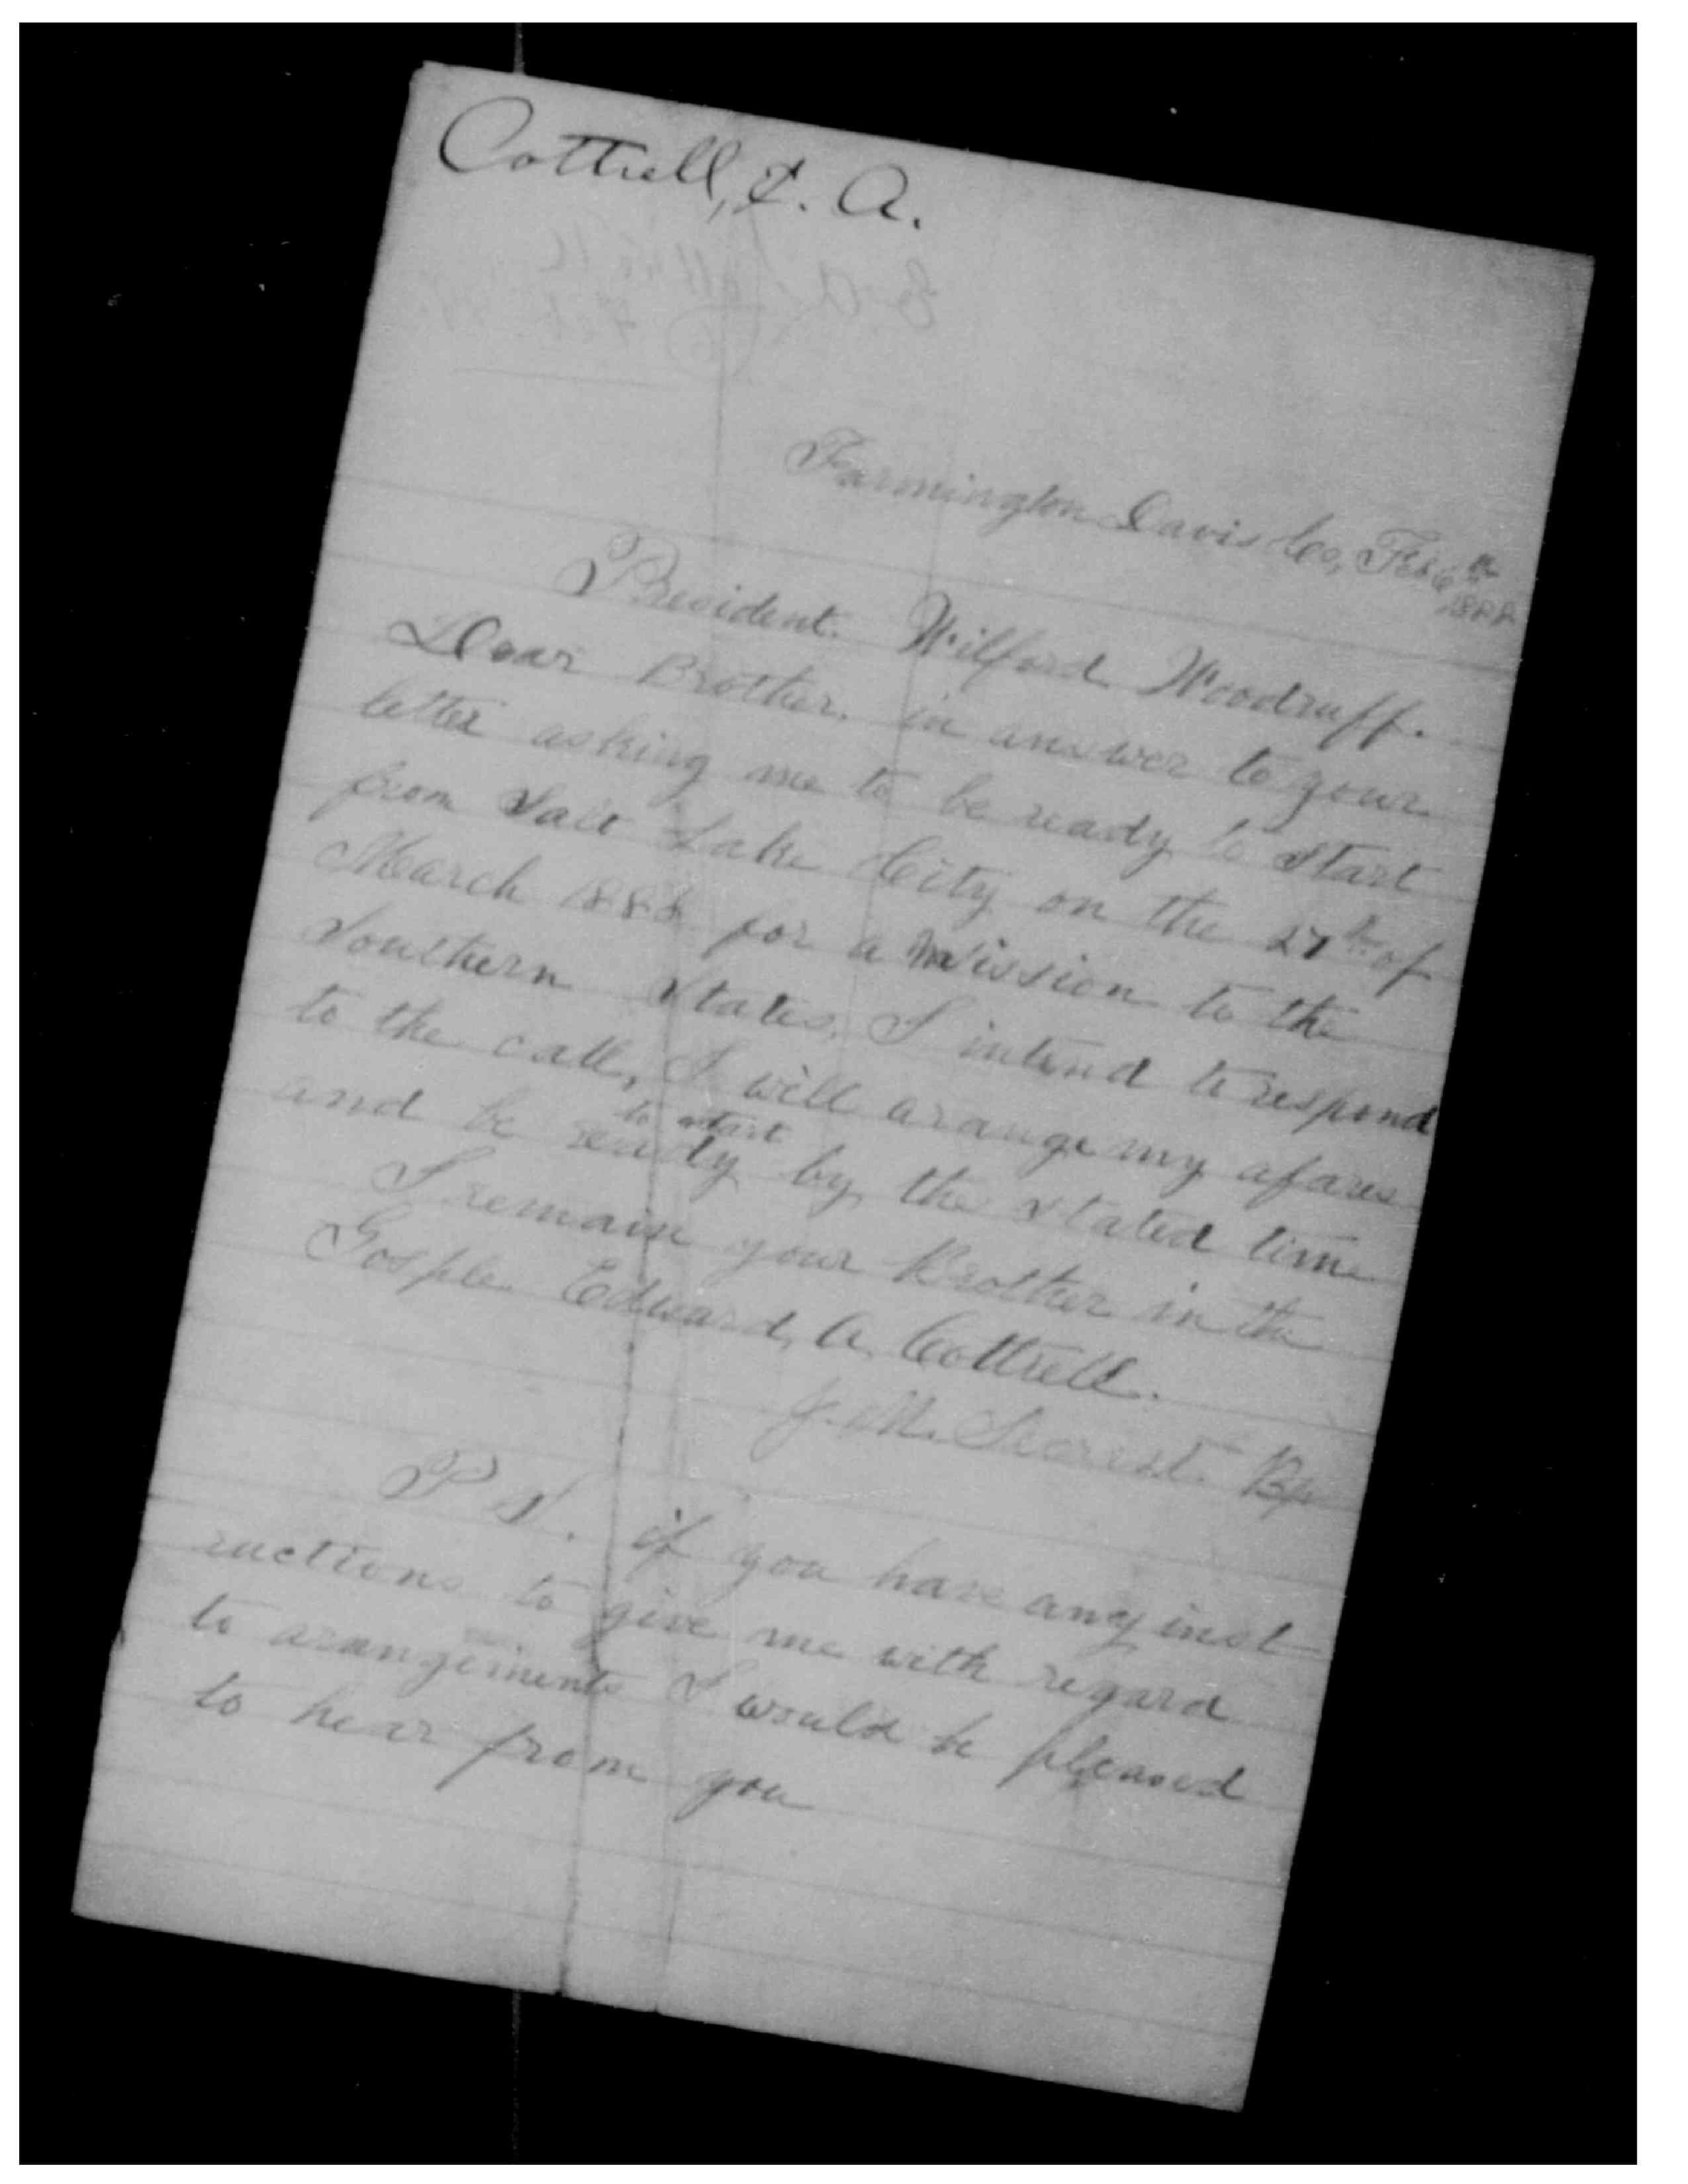 Cottrell, E. A.
Farmington Davis Co, Feb 6th
1888
President. Wilford Woodruff.
Dear Brother, in answer to your
letter asking me to be ready to start
from Salt Lake City on the 27th of
March 1888 for a Mission to the
Southern States, I intend to respond
to the call, I will arange my afares
to start
and be ready by the stated time
I remain your Brother in the
Gosple Edward, A, Cottrell.
J. M. Secrist Bp
P S. if you have any inst
ructions to give me with regard
to arangements I would be pleased
to hear from you